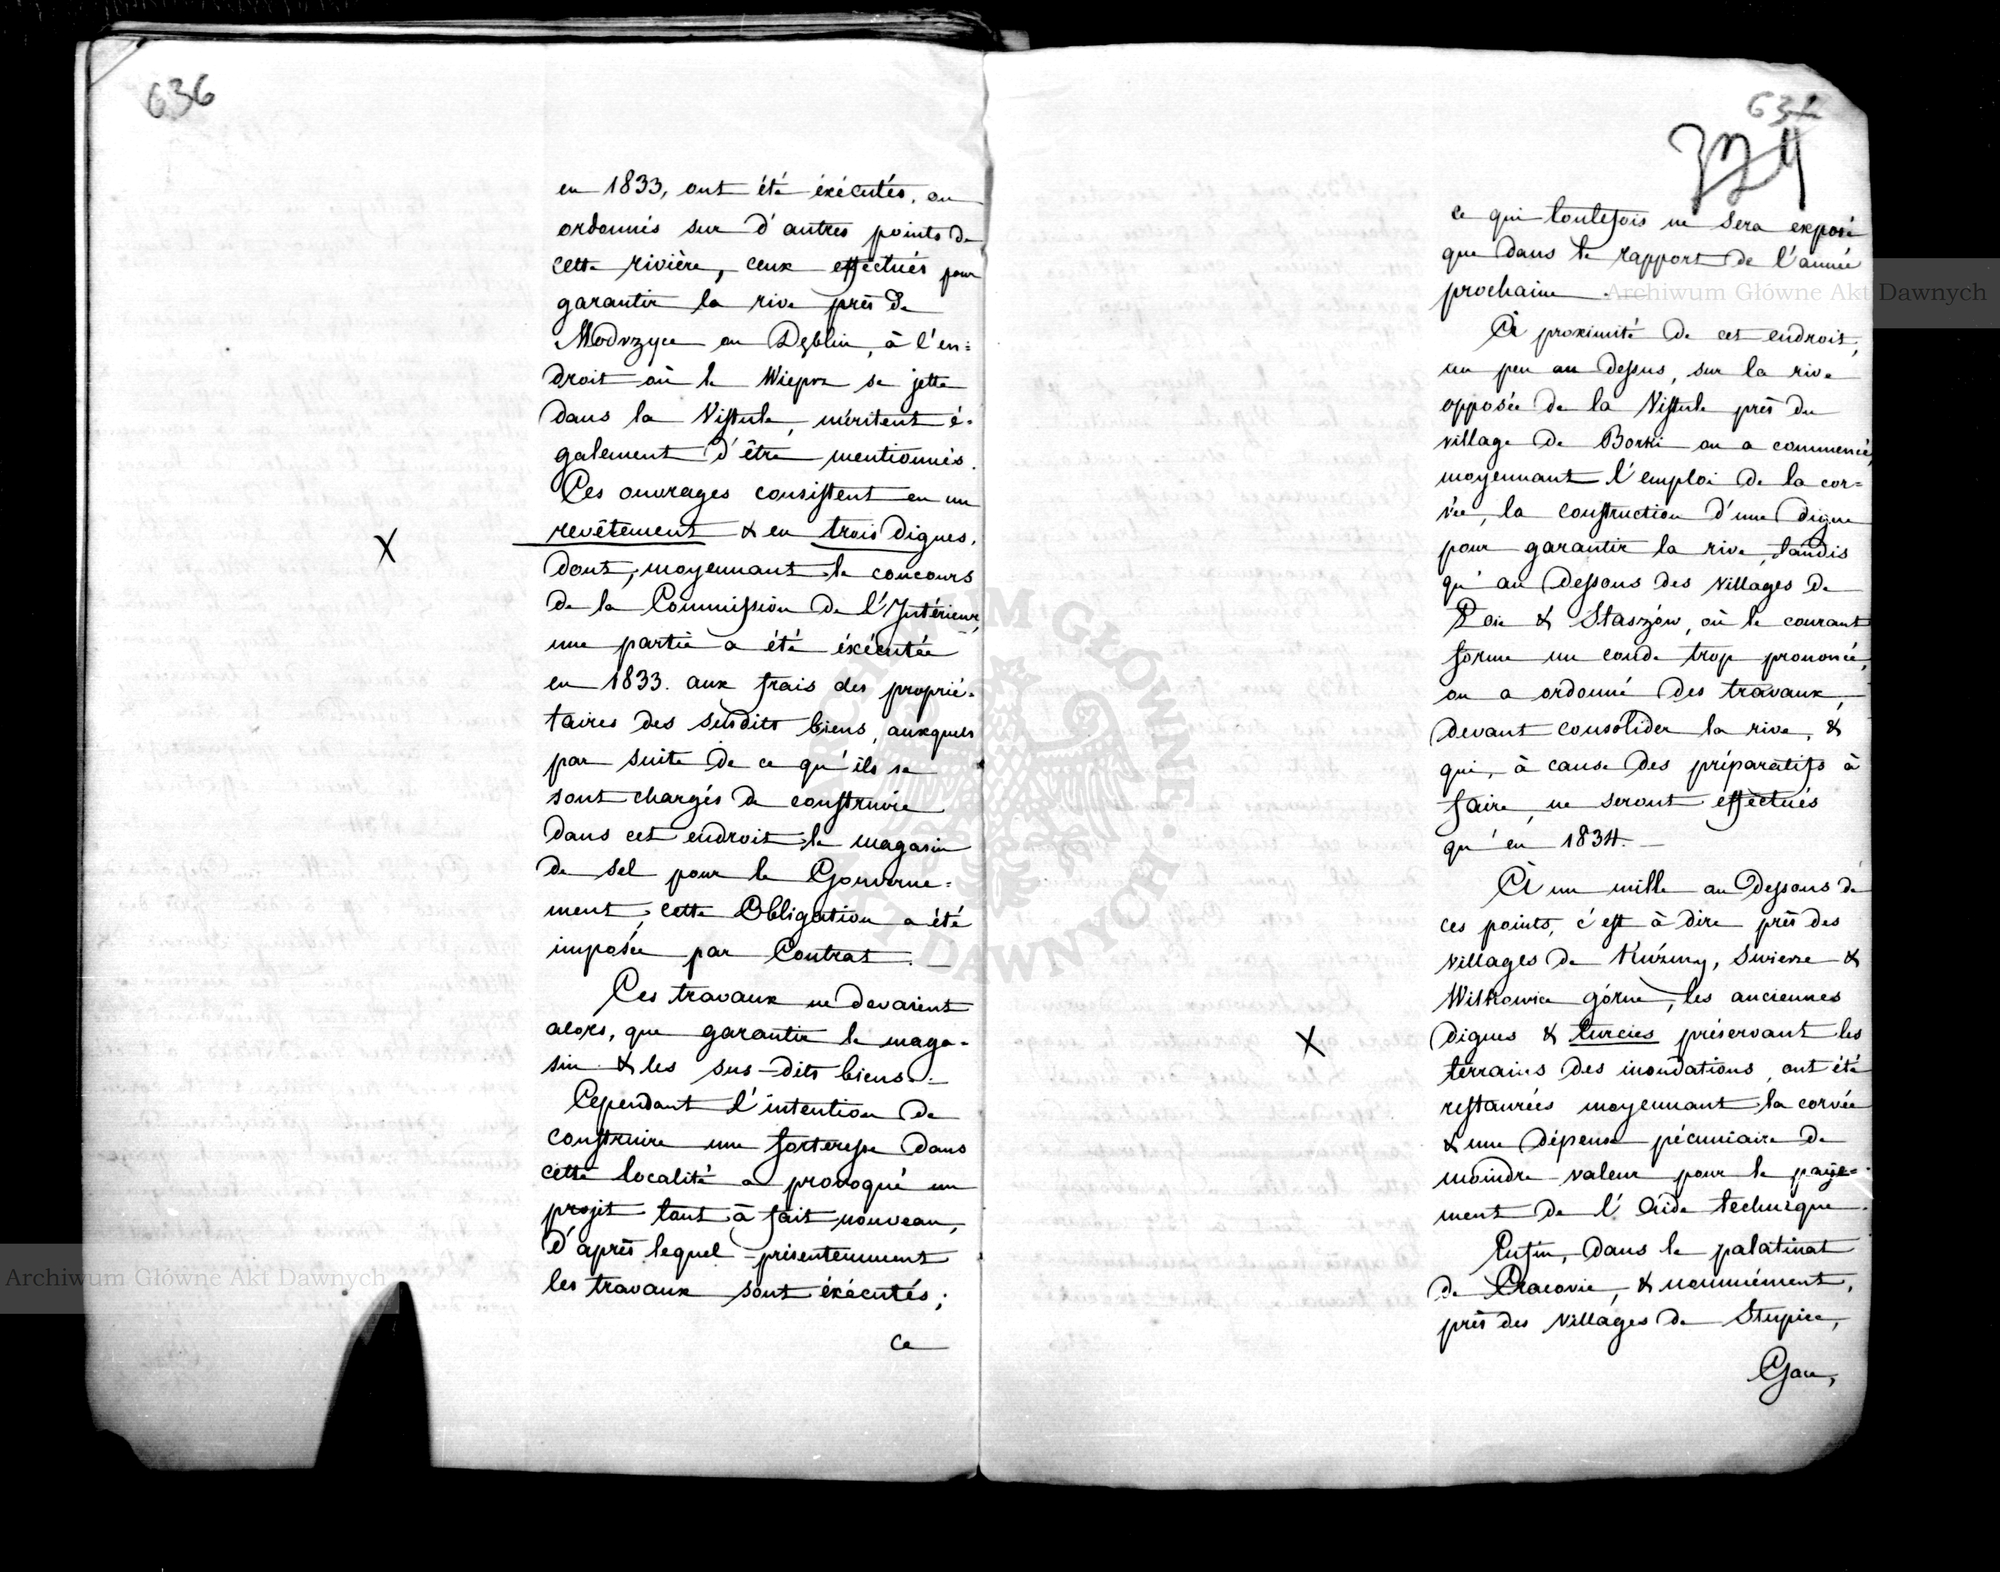 636
en 1833, ont été éxécutés, ou
ordonnés sur d'autres points de
cette rivière, ceux effectués pour
garantir la rive près de
Modrzyce ou Dęblin, à l'en=
droit où le Wieprz se jette
dans la Vistule, méritent é-
galement d'être mentionnés.
Ces ouvrages consistent en un
revêtement & en trois digues,
X
dont, moyennant le concours
de la Commission de l'Intérieur,
une partie a été éxécutée
en 1833. aux frais des proprié-
taires des susdits biens, auxquels
par suite de ce qu'ils se
sont chargés de construire
dans cet endroit le magasin
de sel pour le Gouverne=
ment, cette Obligation a été
imposée par Contrat. —
Ces travaux ne devaient
alors, que garantir le maga-
sin & les sus-dits biens. —
Cependant l'intention de
construire une forteresse dans
cette localité a provoqué un
projet tout à fait nouveau,
d'après lequel présentemment
les travaux sont éxécutés;
ce
324
ce qui toutefois ne sera exposé
que dans le rapport de l'année
prochaine.
À proximité de cet endroit,
un peu au dessus, sur la rive
opposée de la Vistule près du
village de Borki on a commencé,
moyennant l'emploi de la cor=
vée, la construction d'une digue
pour garantir la rive, tandis
qu'au dessous des villages de
& Staszów, où le courant
forme un coude trop prononcé,
on a ordonné des travaux,
devant consolider la rive, &
qui, à cause des préparatifs à
faire, ne seront effectués
qu'en 1834. —
À un mille au dessous de
ces points, c'est à dire près des
villages de Kuźmy, Swierze &
Wilkowice górne, les anciennes
X
digues & turcies préservant les
terrains des inondations, ont été
restaurées moyennant la corvée
& une dépense pécuniaire de
moindre valeur pour le paye=
ment de l'Aide technique.
Enfin, dans le palatinat
de Cracovie, & nommément,
près des villages de Stupice,
Archiwum Główne Akt Dawnych
Archiwum Główne Akt Dawnych
ARCHIWUM GŁÓWNE AKT DAWNYCH